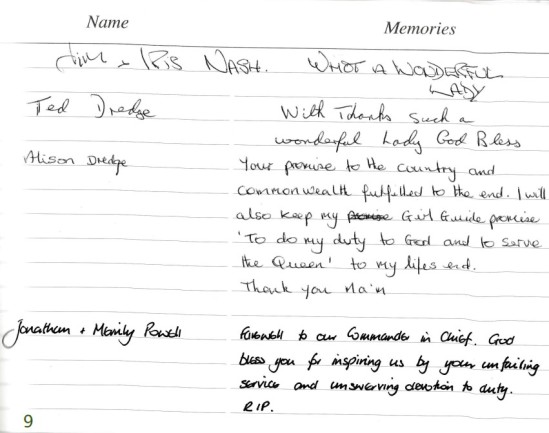 Name Memories
Jim + IRIS NASH. WHAT A WONDERFUL
LADY
Ted Dredge With Thanks Such a
wonderful Lady God Bless
Alison Dredge Your promise to the country and
commonwealth fulfilled to the end. I will
also keep my promise Girl Guide promise
'To do my duty to God and to serve
the Queen' to my lifes end.
Thank you Ma'm
Jonathan + Powell Farewell to our Commander in Chief. God
bless you for inspiring us by your unfailing
service and unswerving devotion to duty.
R.I.P.
9